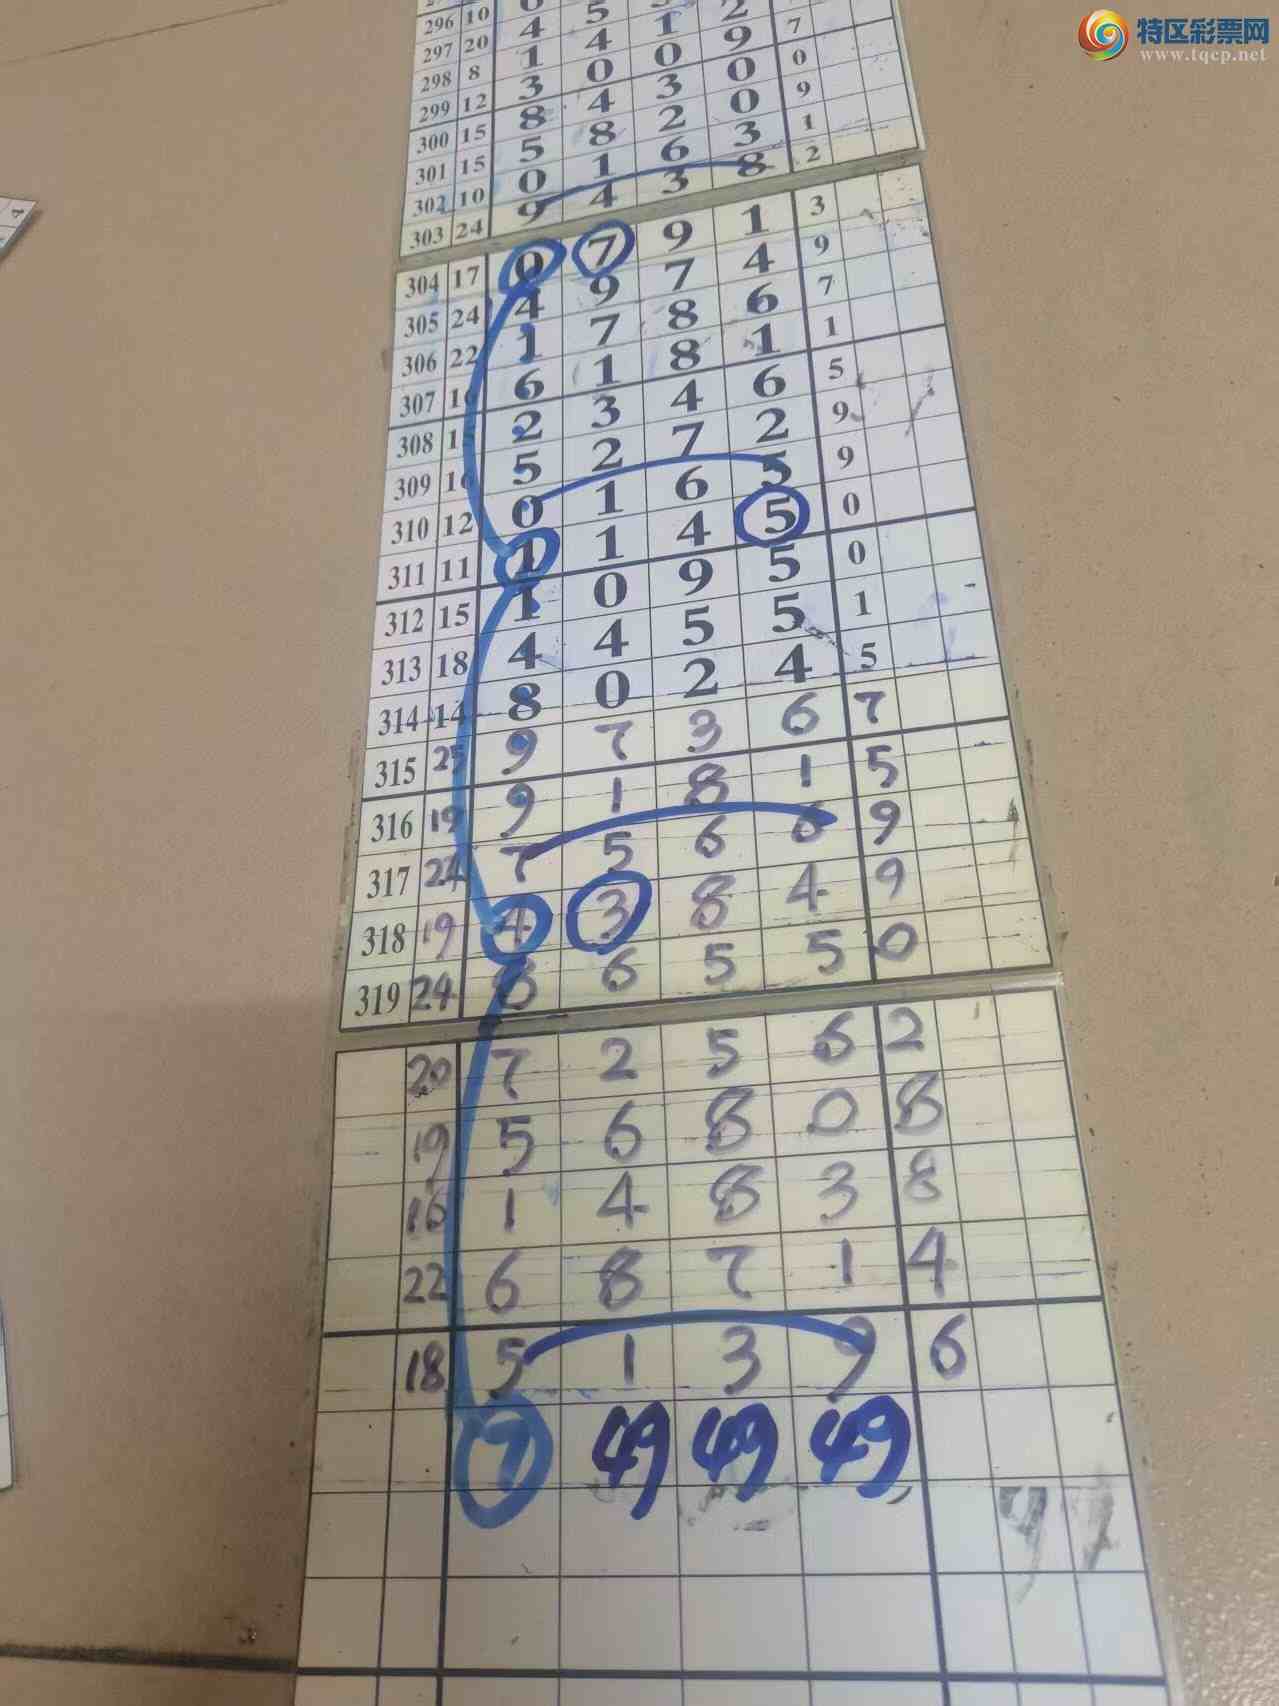 296 10
297 20 4 5
298 8 1 4 1 2
299 12 3 0 0 9 7
300 15 8 4 3 0 0
301 15 5 8 2 0 9
302 10 0 1 6 3 1
303 24 9 4 3 8 2
304 17 0 7 9 1 3
305 24 4 9 7 4 9
306 22 1 7 8 6 7
307 16 6 1 8 1 1
308 15 2 3 4 6 5
309 16 5 2 7 2 9
310 12 0 1 6 5 9
311 11 1 1 4 5 0
312 15 1 0 9 5 0
313 18 4 4 5 5 1
314 14 8 0 2 4 5
315 25 9 7 3 6 7
316 19 9 1 8 1 5
317 24 7 5 6 6 9
318 19 4 3 8 4 9
319 24 8 6 5 5 0
20 7 2 5 6 2
19 5 6 8 0 8
16 1 4 8 3 8
22 6 8 7 1 4
18 5 1 3 9 6
7 49 49 49
特区彩票网
www.tqcp.net